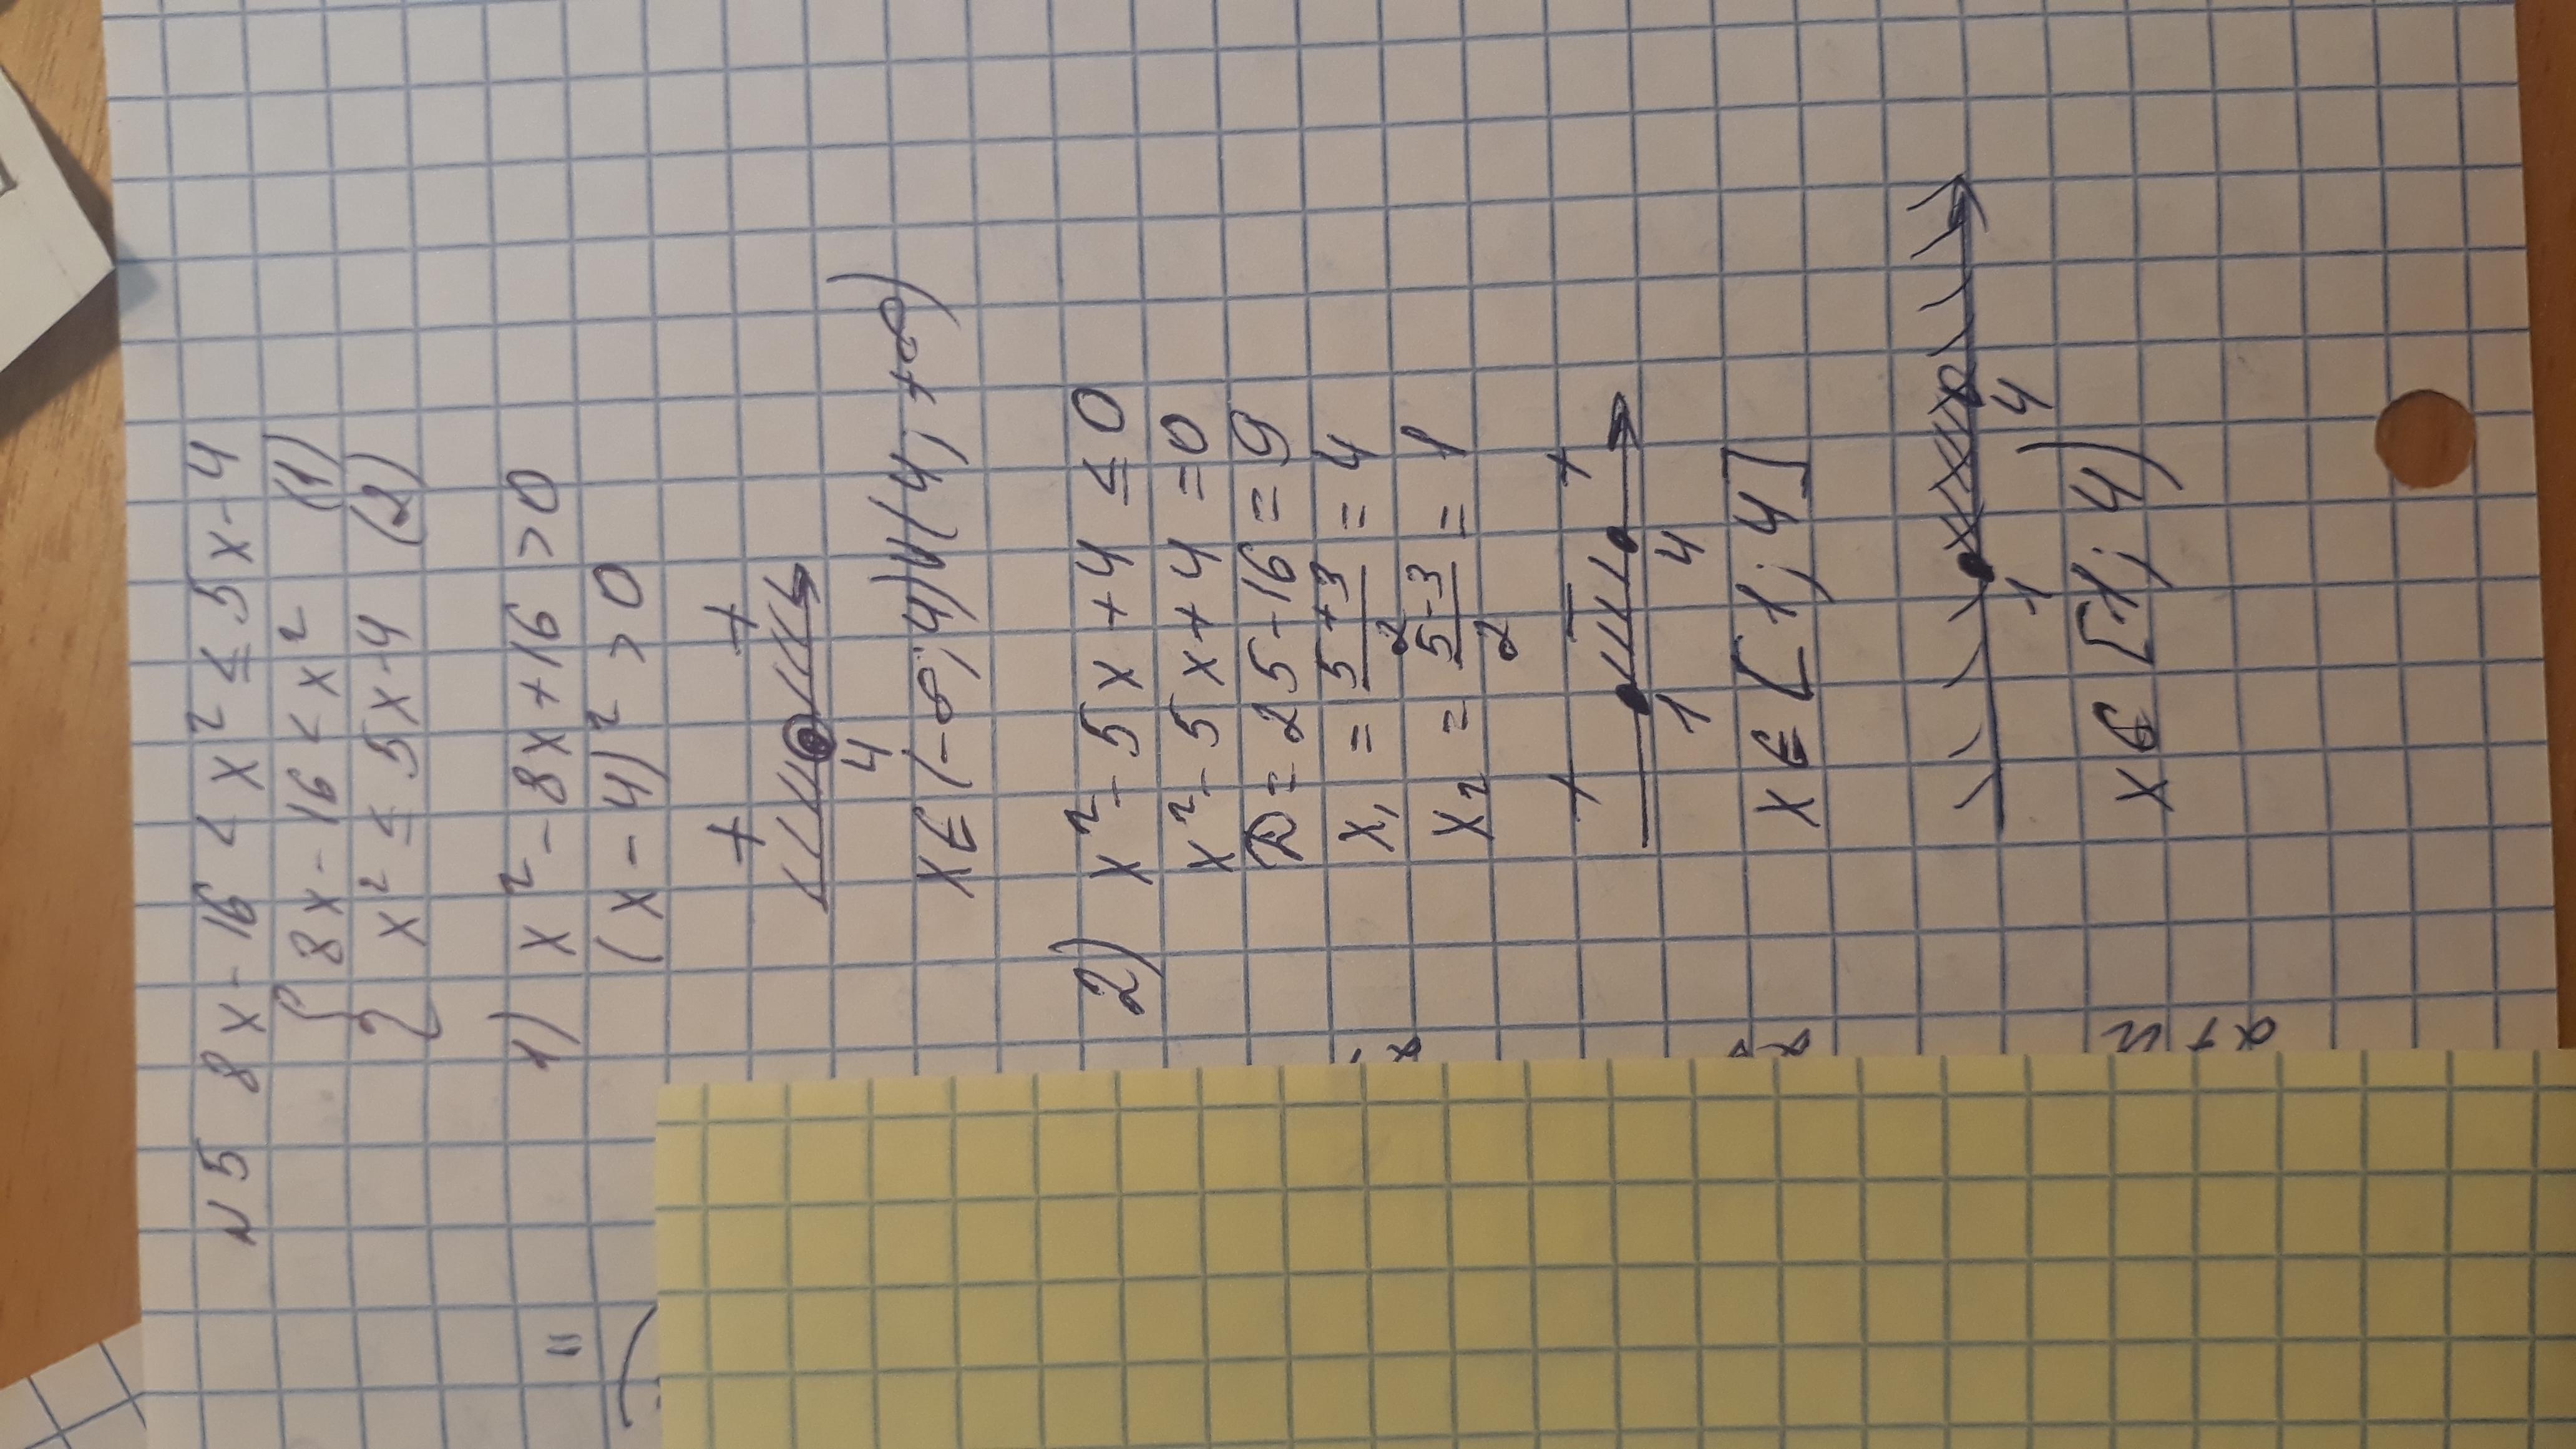 N5 8x-16 < x² ≤ 5x-4
{ 8x-16 < x² (1)
x² ≤ 5x-4 (2)
1) x²-8x+16 >0
(x-4)² >0
+ +
4
x∈(-∞;4)∪(4;+∞)
2) x²-5x+4 ≤ 0
x²-5x+4 =0
D=25-16=9
x₁ = 5+3/2 = 4
x₂ = 5-3/2 = 1
+ - +
1 4
x∈[1;4]
1 4
x∈[1;4)